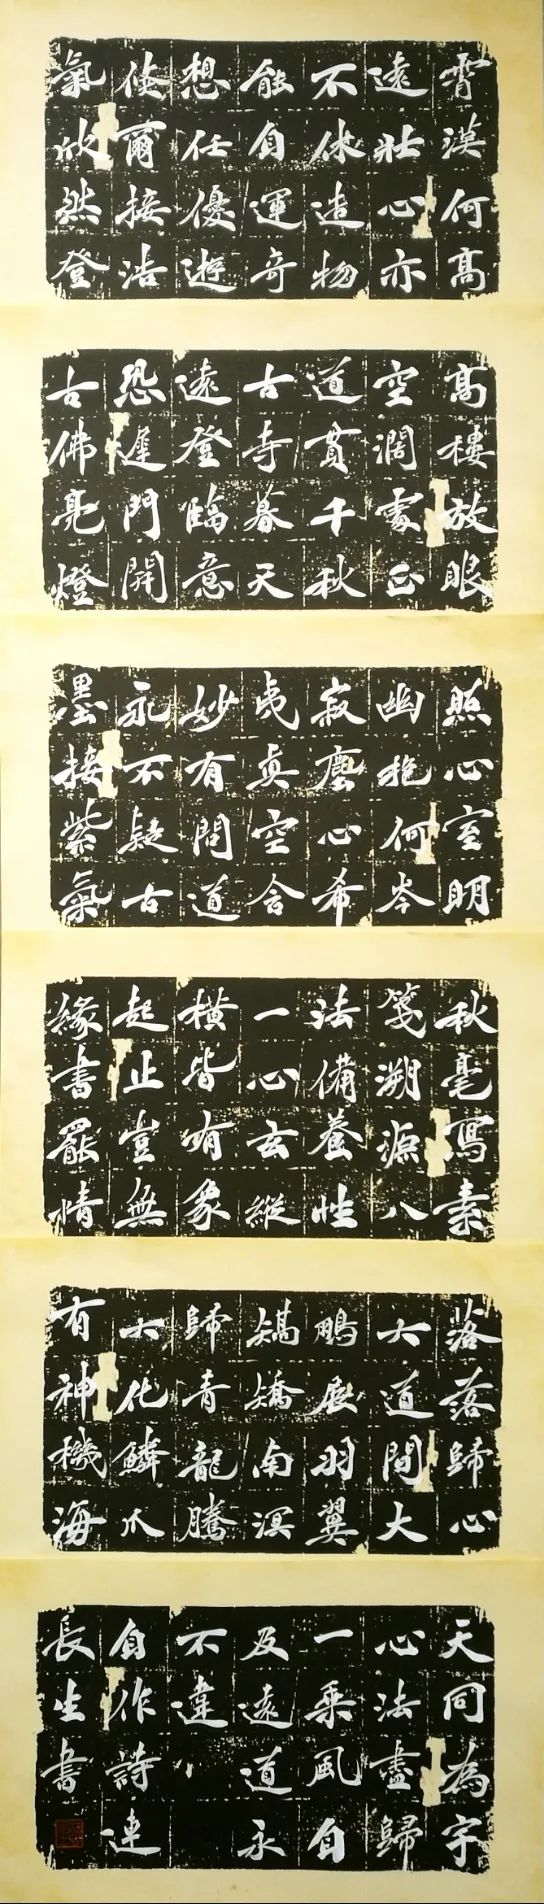 霄漢何高
遠壯心亦
不休造物
能自運奇
想任優遊
倏爾接浩
氣欣然登
高樓放眼
空濶處正
道貫千秋
古寺暮天
遠登臨意
恐遲門開
古佛亮燈
照心室明
幽抱何岑
寂塵心希
夷真空含
妙有問道
永不疑古
墨接紫氣
秋毫寫素
箋溯源八
法備養性
一心玄縱
橫皆有象
起止豈無
緣書罷情
落落歸心
大道間大
鵬展羽翼
矯矯南溟
歸青龍騰
大化鱗爪
有神機海
天同為宇
心法盡歸
一乘風自
及遠道永
不違
自作詩連
長生書